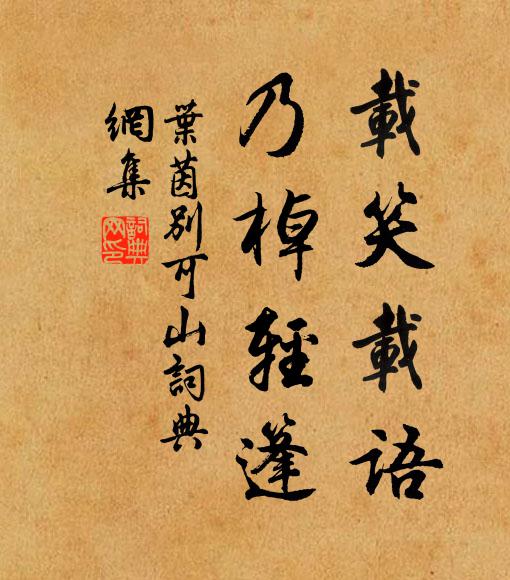 載笑載語
乃棹輕篷
葉茵別可山詞典
網集
詞典
網印